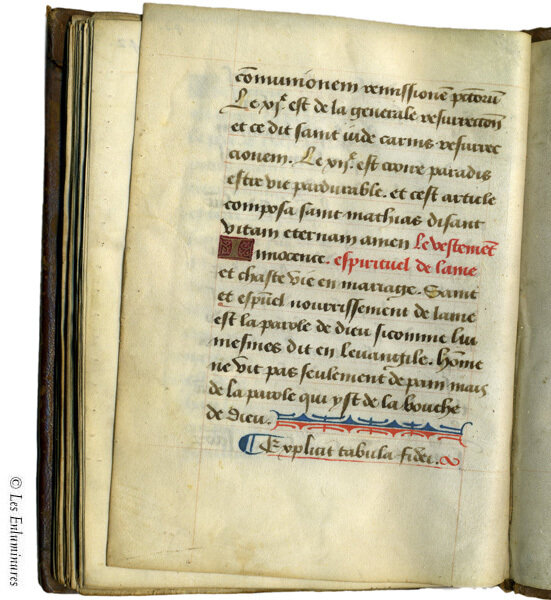 co̅munionem remissione̅ pecc̅toru̅
Le xjͤ. est de la generale resurrection
et ce dit saint iude carnis resurrec
cionem. Le xijͤ. est croire paradis
estre vie pardurable. et cest article
composa saint mathias disant
vitam eternam amen le vestement
Innocence. espirituel de lame
et chaste vie en mariage. Saint
et esp̅uel nourrissement de lame
est la parole de dieu sicomme lui
mesmes dit en leuangile. home
ne vit pas seulement de pain mais
de la parole qui yst de la bouche
de dieu.
Explicit tabula fidei.
© Les Enluminures